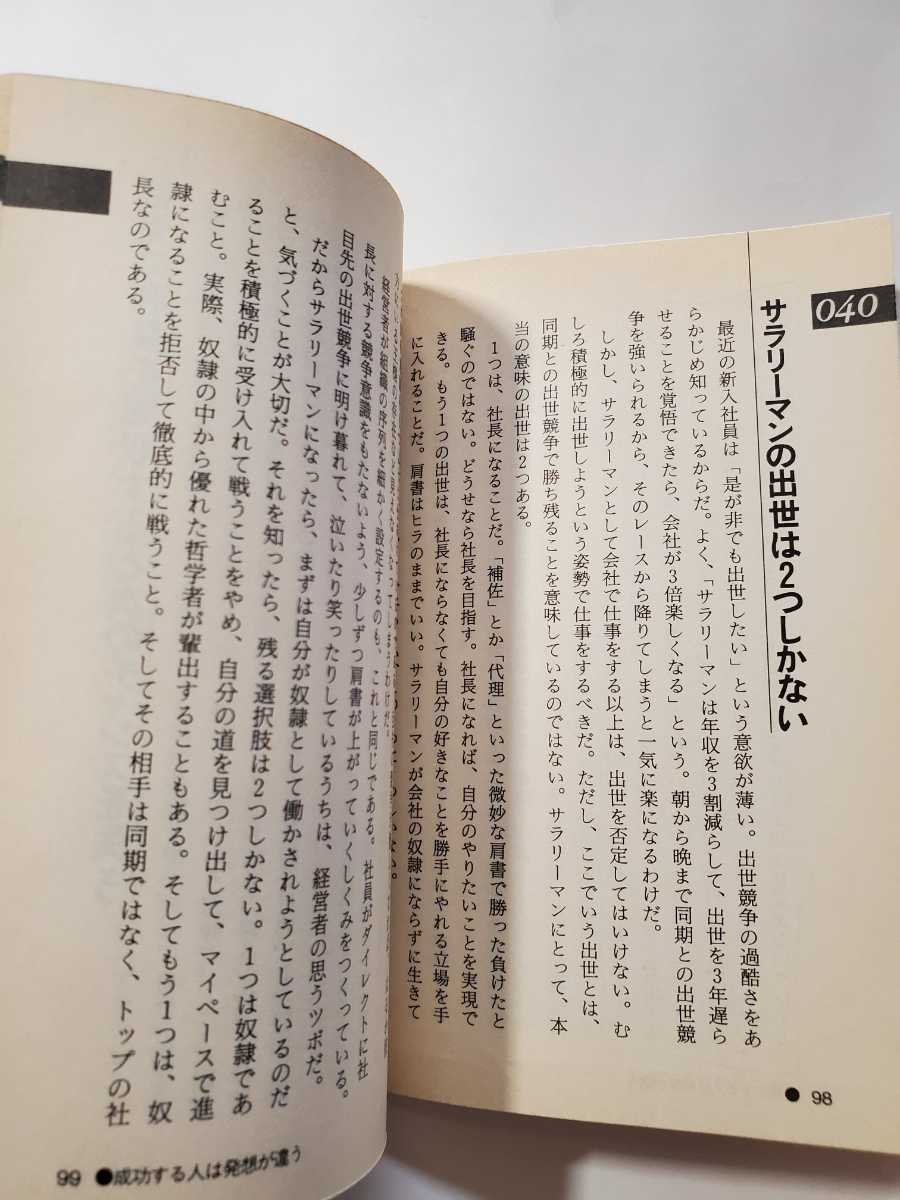 040
サラリーマンの出世は2つしかない
最近の新入社員は「是が非でも出世したい」という意欲が薄い。出世競争の過酷さをあ
らかじめ知っているからだ。よく、「サラリーマンは年収を3割減らして、出世を3年遅ら
せることを覚悟できたら、会社が3倍楽しくなる」という。朝から晩まで同期との出世競
争を強いられるから、そのレースから降りてしまうと一気に楽になるわけだ。
しかし、サラリーマンとして会社で仕事をする以上は、出世を否定してはいけない。む
しろ積極的に出世しようという姿勢で仕事をするべきだ。ただし、ここでいう出世とは、
同期との出世競争で勝ち残ることを意味しているのではない。サラリーマンにとって、本
当の意味の出世は2つある。
1つは、社長になることだ。「補佐」とか「代理」といった微妙な肩書で勝った負けたと
騒ぐのではない。どうせなら社長を目指す。社長になれば、自分のやりたいことを実現で
きる。もう1つの出世は、社長にならなくても自分の好きなことを勝手にやれる立場を手
に入れることだ。肩書はヒラのままでいい。サラリーマンが会社の奴隷にならずに生きて
● 98
経営者が組織の序列を細かく設定するのも、これと同じである。社員がダイレクトに社
長に対する競争意識をもたないよう、少しずつ肩書が上がっていくしくみをつくっている。
目先の出世競争に明け暮れて、泣いたり笑ったりしているうちは、経営者の思うツボだ。
だからサラリーマンになったら、まずは自分が奴隷として働かされようとしているのだ
と、気づくことが大切だ。それを知ったら、残る選択肢は2つしかない。1つは奴隷であ
ることを積極的に受け入れて戦うことをやめ、自分の道を見つけ出して、マイペースで進
むこと。実際、奴隷の中から優れた哲学者が輩出することもある。そしてもう1つは、奴
隷になることを拒否して徹底的に戦うこと。そしてその相手は同期ではなく、トップの社
長なのである。
99 ●成功する人は発想が違う